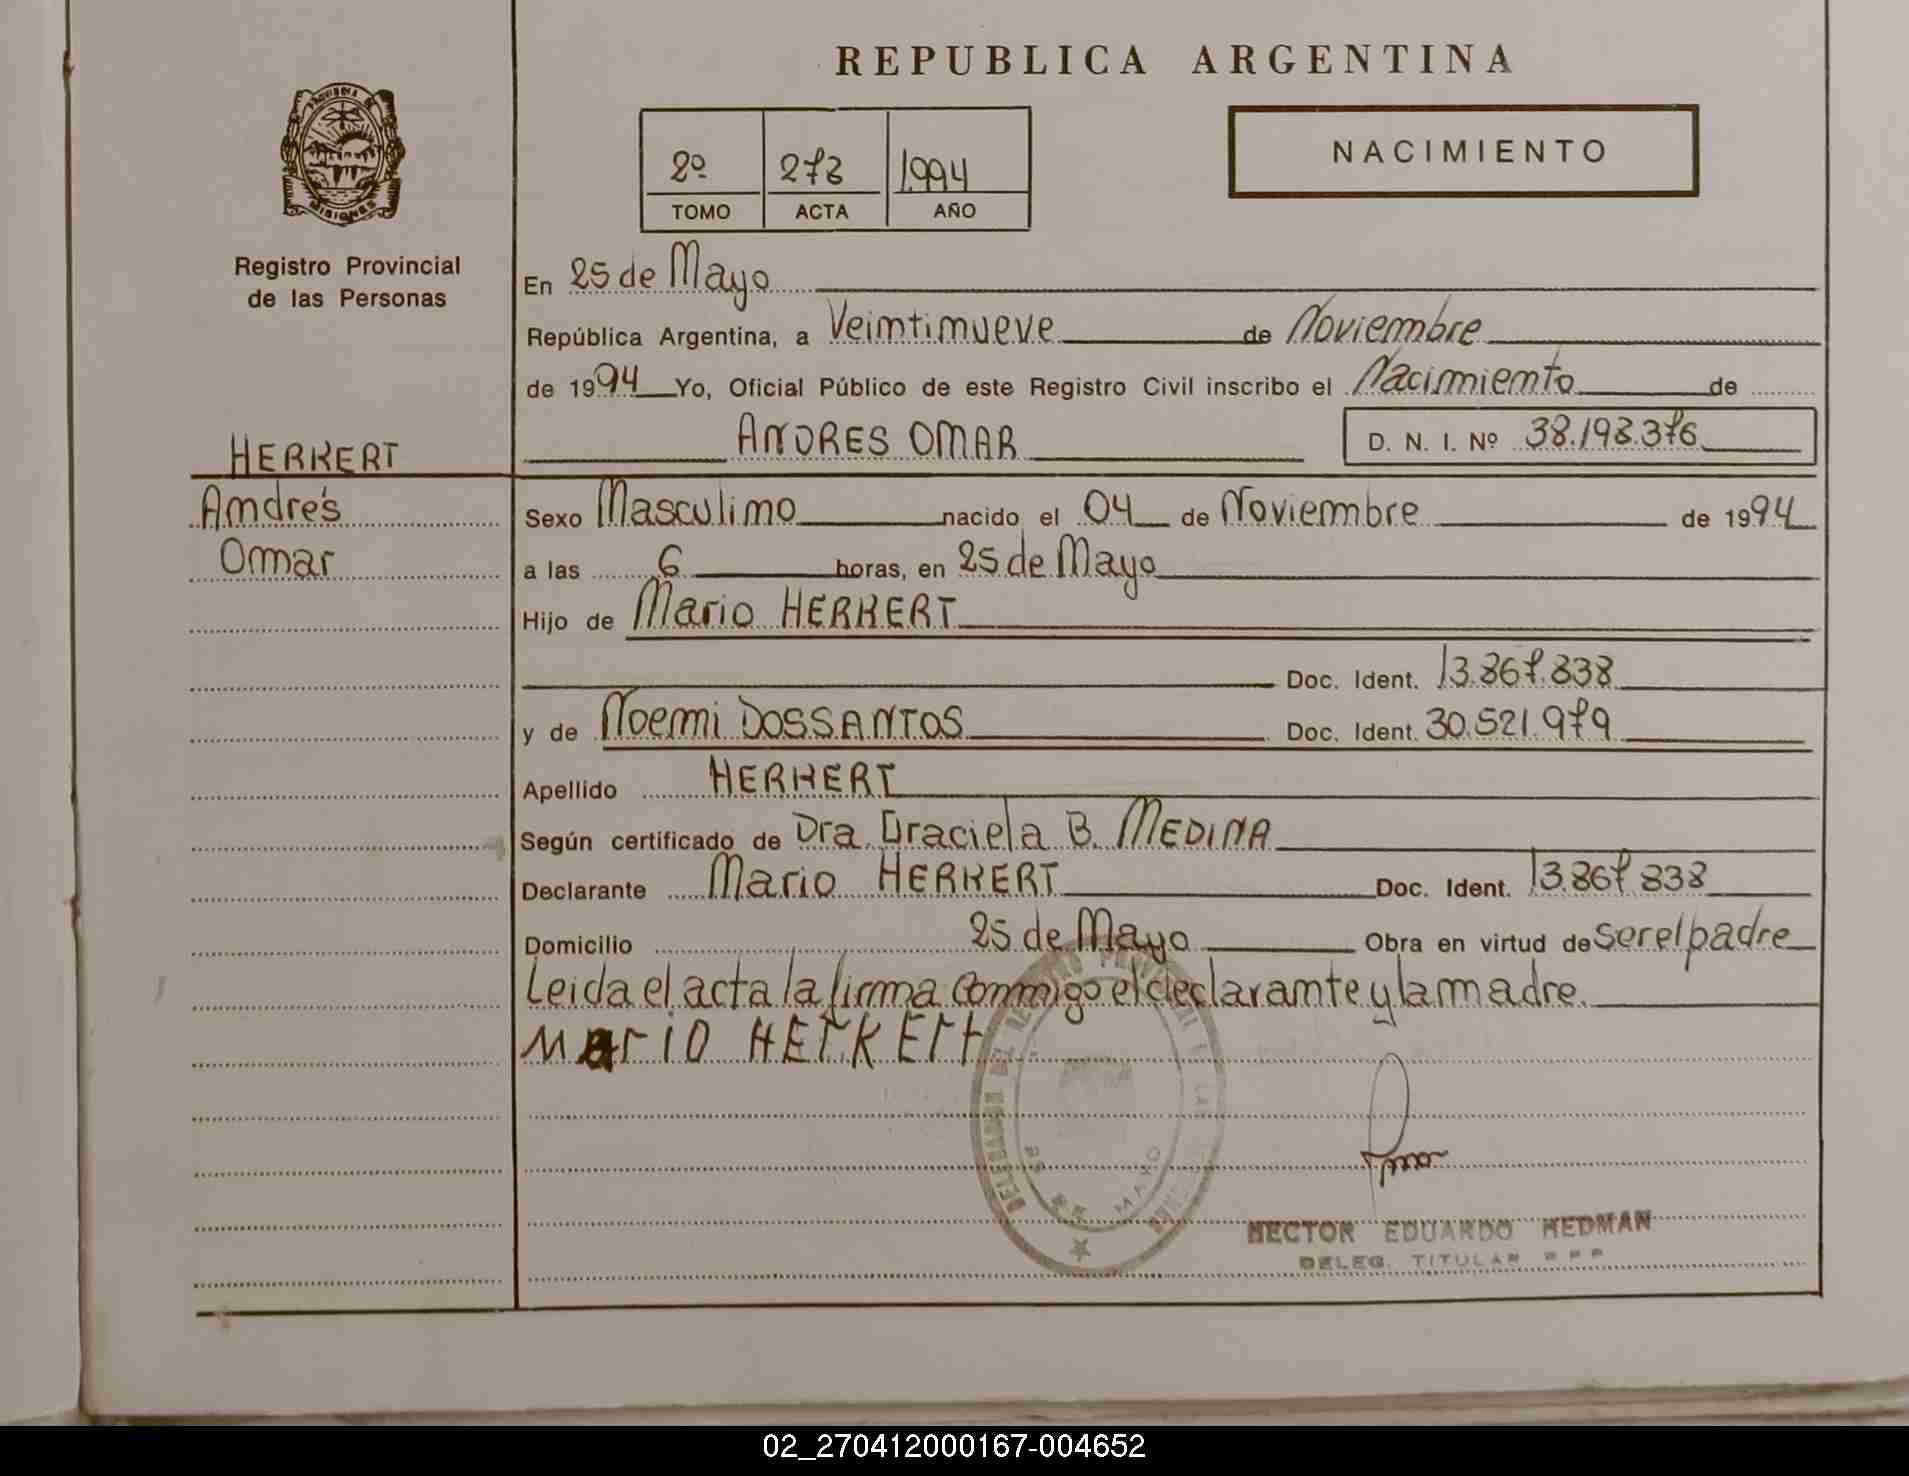 REPUBLICA ARGENTINA
PROVINCIA DE
MISIONES
Registro Provincial
de las Personas
2º 273 1994
TOMO ACTA AÑO
NACIMIENTO
En 25 de Mayo
República Argentina, a Veintinueve de Noviembre
de 1994 Yo, Oficial Público de este Registro Civil inscribo el Nacimiento de
ANDRES OMAR D. N. I. Nº 38.198.376
HERKERT
Andrés
Omar
Sexo Masculino nacido el 04 de Noviembre de 1994
a las 6 horas, en 25 de Mayo
Hijo de Mario HERKERT
Doc. Ident. 13.867.838
y de Noemi DOSSANTOS Doc. Ident. 30.521.979
Apellido HERKERT
Según certificado de Dra. Graciela B. MEDINA
Declarante Mario HERKERT Doc. Ident. 13.867.838
Domicilio 25 de Mayo Obra en virtud de ser el padre
Leida el acta la firma conmigo el declarante y la madre.
Mario HErKErt
25 DE MAYO
HECTOR EDUARDO HEDMAN
DELEG. TITULAR RPP
02_270412000167-004652